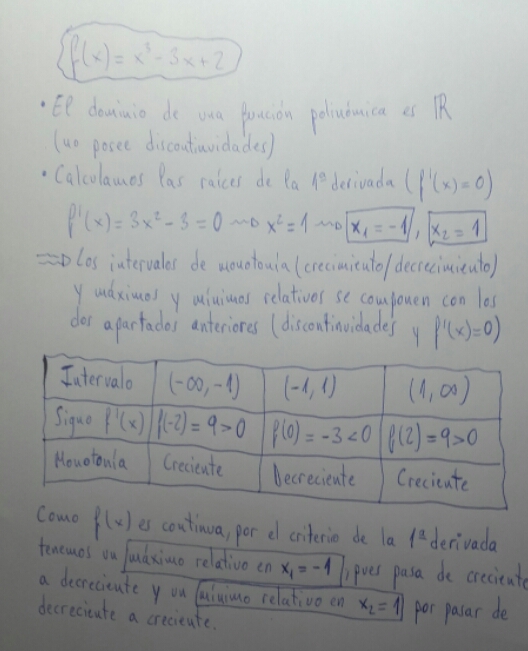 f(x) = x³ - 3x + 2
• El dominio de una función polinómica es ℝ
(no posee discontinuidades)
• Calculamos las raíces de la 1ª derivada (f'(x)=0)
f'(x) = 3x² - 3 = 0 ⇝ x² = 1 ⇝ x₁ = -1, x₂ = 1
⇝ Los intervalos de monotonía (crecimiento/decrecimiento)
y máximos y mínimos relativos se componen con los
dos apartados anteriores (discontinuidades y f'(x)=0)
Intervalo (-∞, -1) (-1, 1) (1, ∞)
Signo f'(x) f(-2) = 9 > 0 f(0) = -3 < 0 f(2) = 9 > 0
Monotonía Creciente Decreciente Creciente
Como f(x) es continua, por el criterio de la 1ª derivada
tenemos un máximo relativo en x₁ = -1, pues pasa de creciente
a decreciente y un mínimo relativo en x₂ = 1 por pasar de
decreciente a creciente.